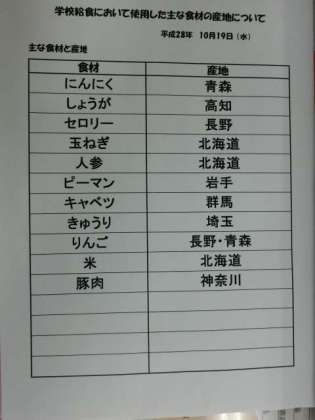 学校給食において使用した主な食材の産地について
平成28年 10月19日（水）
主な食材と産地
食材 産地
にんにく 青森
しょうが 高知
セロリー 長野
玉ねぎ 北海道
人参 北海道
ピーマン 岩手
キャベツ 群馬
きゅうり 埼玉
りんご 長野・青森
米 北海道
豚肉 神奈川